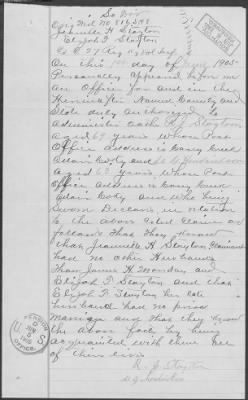 So Div
Orig Wid No. 816,593
Jeannette H Slayton
Elijah F. Slayton
Co C 27 Reg Ky Vol Inf
On this day of 1905
Personally appeared before me
An Officer for and in the
Hereinafter Named County and
State duly authorized to
Administer oaths R J Slayton
aged 69 years whose Post
Office address is Casey Creek
Adair Co Ky and
aged 63 years whose Post
Office address is Casey Creek
Adair Co Ky and who being
Sworn Declare in relation
to the above Entitled Claim as
follows that they know
that Jeannette H Slayton Claimant
had no other Husbands
than James H. Monday and
Elijah F. Slayton and that
Elijah F. Slayton her late
husband had no prior
marriage and that they know
the above facts by being
acquainted with them all
of their lives
R. J. Slayton